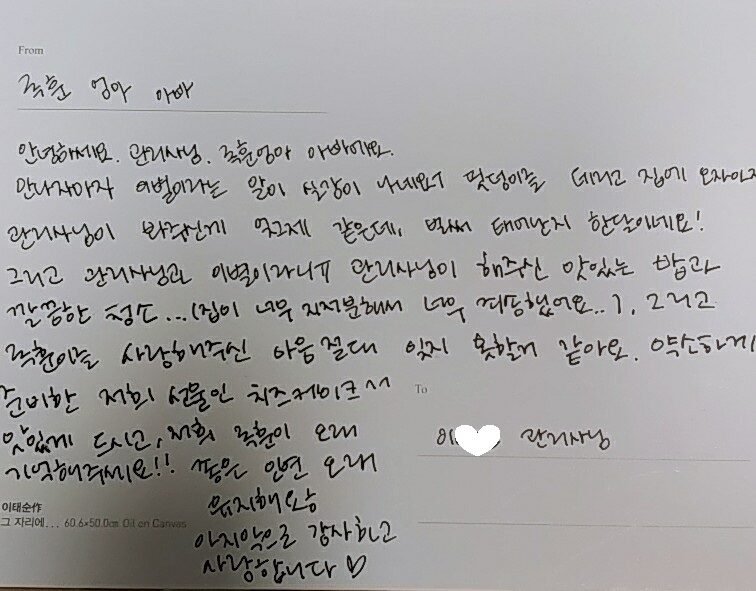 From
륵훈 엄마 아빠
안녕하세요. 관리사님. 륵훈엄마 아빠에요.
만나자마자 이별이라는 말이 실감이 나네요ㅠ 멋덩이를 데리고 집에 오자마자
관리사님이 봐주신게 엊그제 같은데, 벌써 태어난지 한달이네요!
그리고 관리사님과 이별이라니ㅠ 관리사님이 해주신 맛있는 밥과
깔끔한 청소...(집이 너무 지저분해서 너무 죄송했어요..), 그리고
륵훈이를 사랑해주신 마음 절대 잊지 못할거 같아요. 약소하게
준비한 저희 선물인 치즈케이크^^
맛있게 드시고, 저희 륵훈이 오래
기억해주세요!! 좋은 인연 오래
유지해요
마지막으로 감사하고
사랑합니다♡
To
이 관리사님
이태순作
그 자리에... 60.6×50.0cm Oil on Canvas